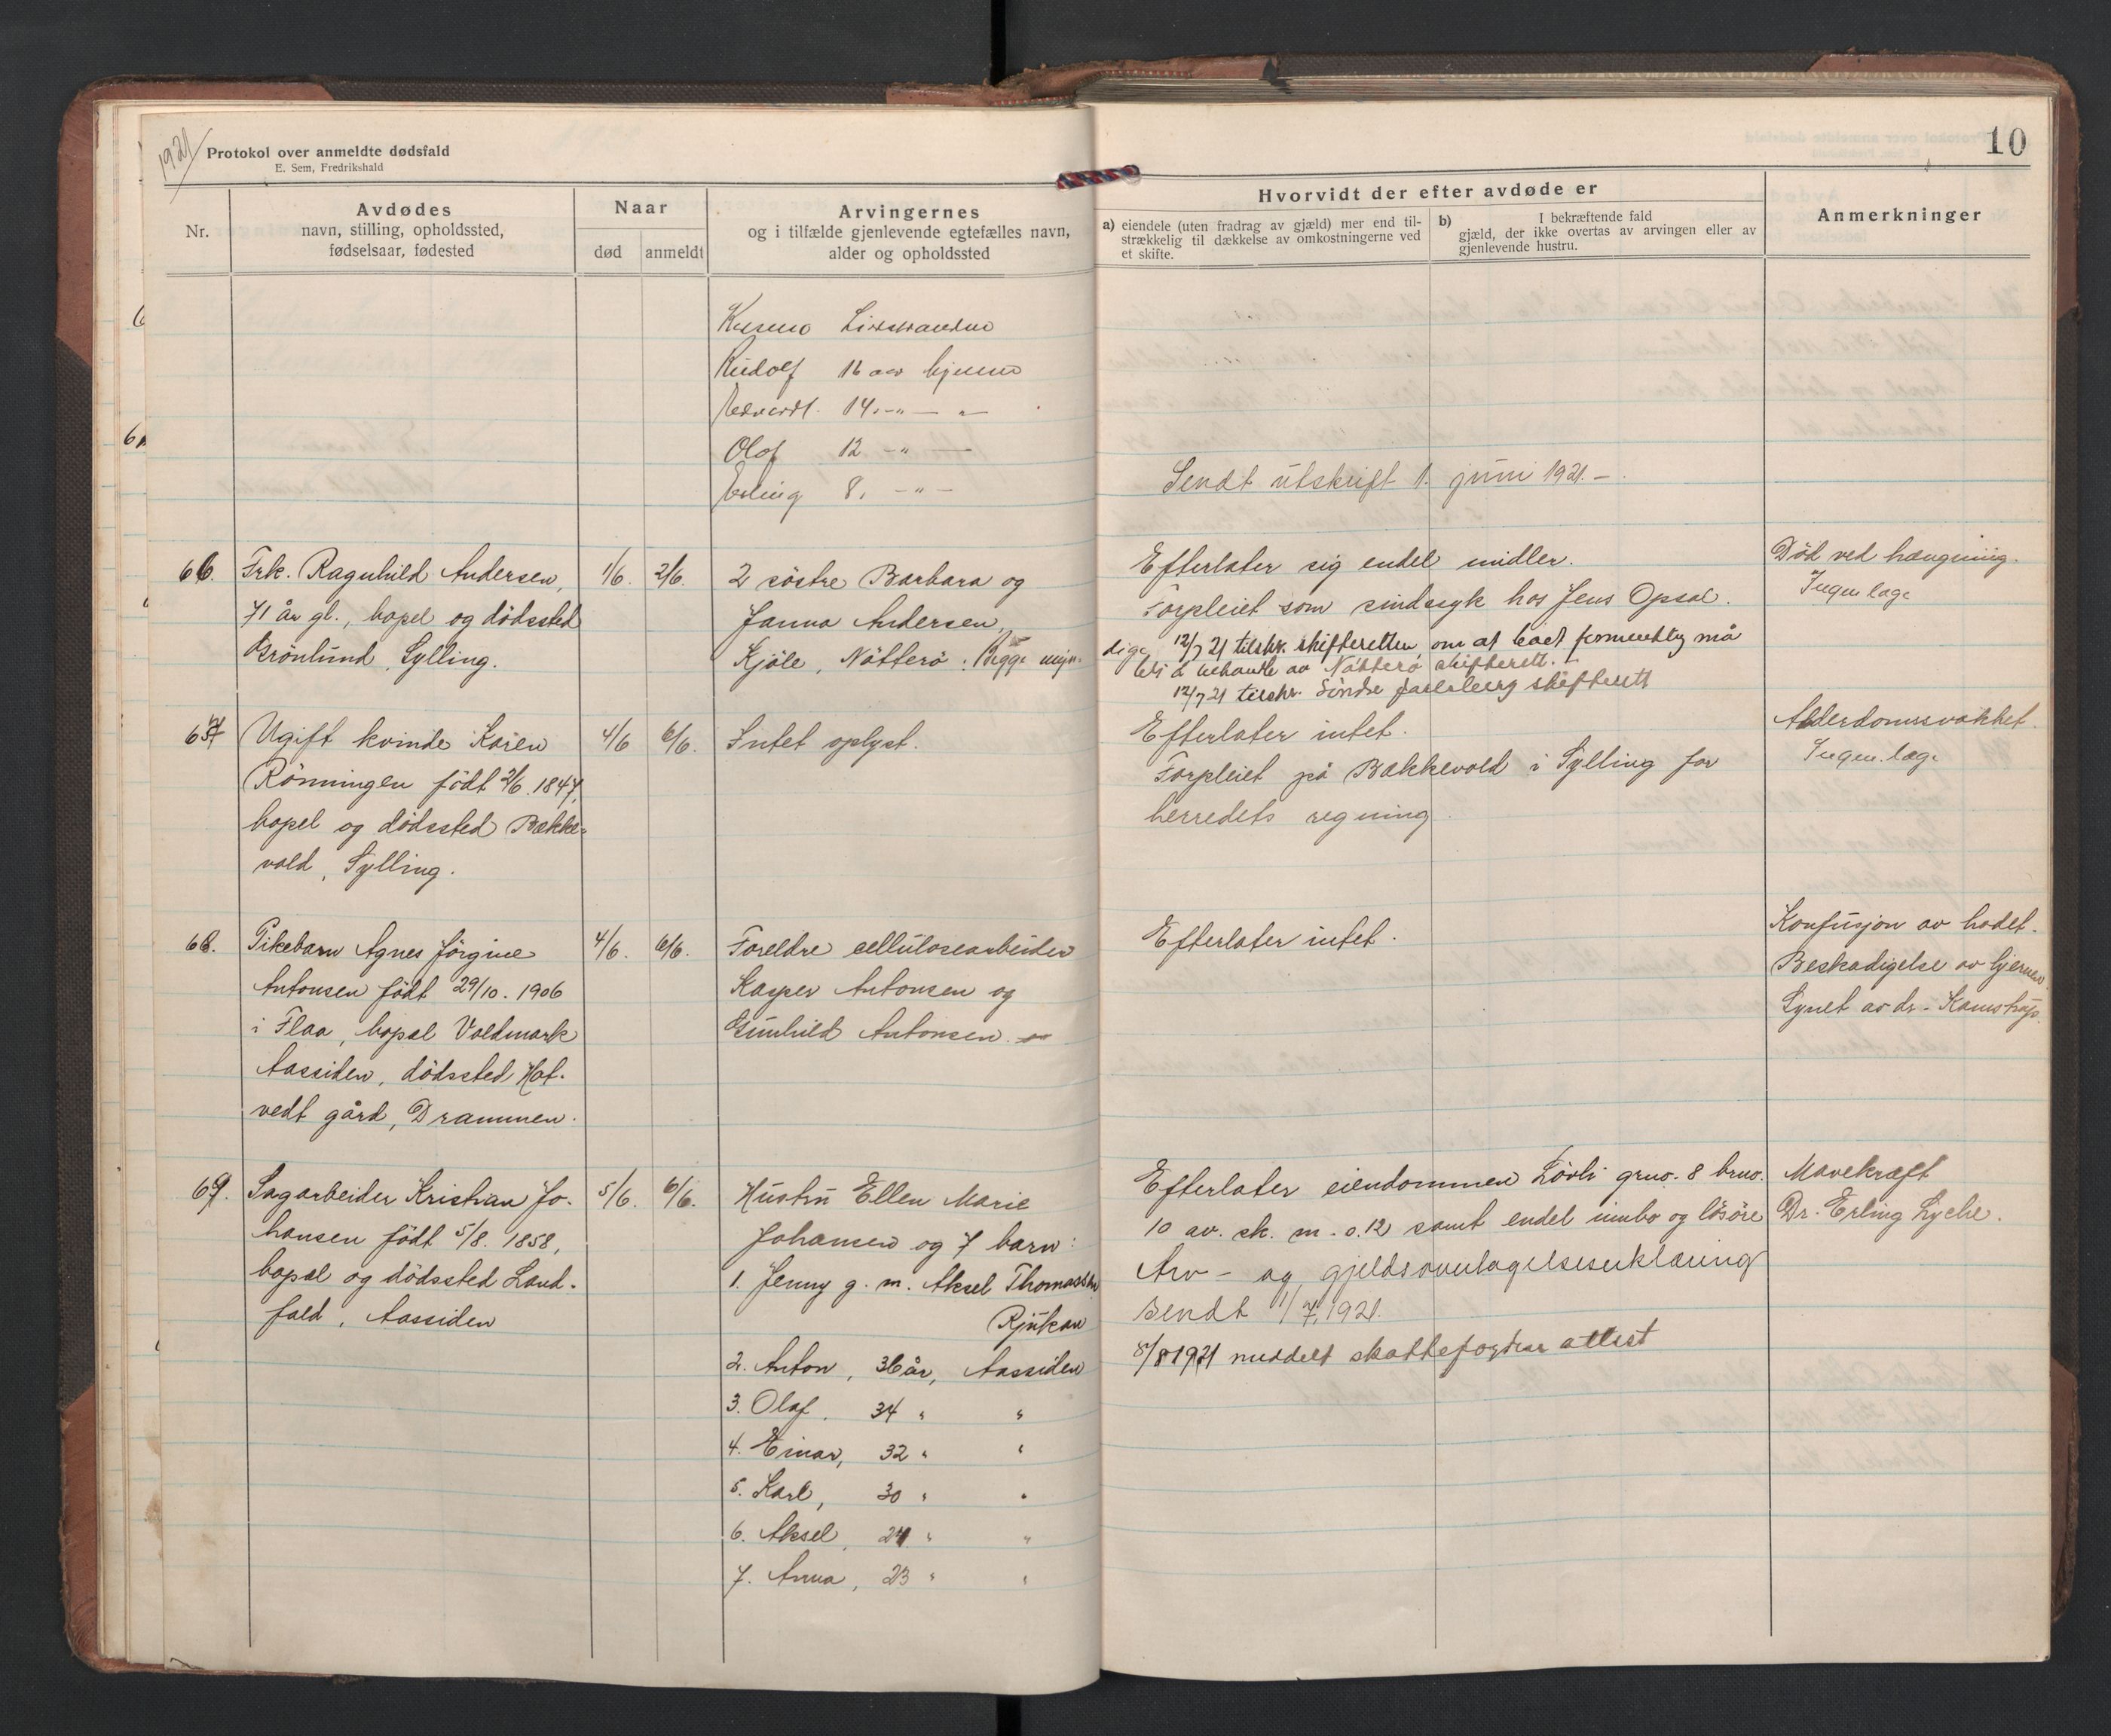 1921
Protokol over anmeldte dødsfald
E. Sem, Fredrikshald
10
Nr.
Avdødes
navn, stilling, opholdssted,
fødselsaar, fødested
Naar
død
anmeldt
Arvingernes
og i tilfælde gjenlevende egtefælles navn,
alder og opholdssted
Hvorvidt der efter avdøde er
a) eiendele (uten fradrag av gjæld) mer end til-
strækkelig til dækkelse av omkostningerne ved
et skifte.
b) I bekræftende fald
gjæld, der ikke overtas av arvingen eller av
gjenlevende hustru.
Anmerkninger
Rudolf 16 aar hjemme
Edvardt. 14 " "
Olaf 12 "
Erling 8. "
Sendt utskrift 1. juni 1921.-
66.
Frk. Ragnhild Andersen,
71 år gl., bopel og dödssted
Grönlund, Sylling.
1/6.
2/6.
2 söstre Barbara og
Janna Andersen,
Kjöle, Nötterö. Begge myn-
dige
Efterlater sig endel midler.
Forpleiet som sindssyk hos Jens Opsal.
12/7 21 tilskr. skifteretten om at boet formentlig må
bli å behandle av Nötterö skifterett.
12/7 21 tilskr. Söndre Jarlsberg skifterett
Död ved hængning.
Ingen læge
67
Ugift kvinde Karen
Rönningen födt 2/6. 1847,
bopel og dödssted Bække-
vold, Sylling.
4/6
6/6.
Intet oplyst.
Efterlater intet.
Forpleiet på Bækkevold i Sylling for
herredets regning
Alderdomssvakhet.
Ingen læge
68.
Pikebarn Agnes Jörgine
Antonsen födt 29/10. 1906
i Flaa, bopæl Voldmark
Aassiden, dödssted Hot-
vedt gård, Drammen.
4/6.
6/6.
Foreldre cellulosearbeider
Kasper Antonsen og
Gunhild Antonsen.
Efterlater intet.
Konfusjon av hodet.
Beskadigelse av hjernen
Synet av dr. Kamstrup.
69.
Sagarbeider Kristian Jo-
hansen födt 5/8. 1858,
bopæl og dödssted Land-
fald, Aassiden
5/6.
6/6.
Hustru Ellen Marie
Johansen og 7 barn:
1. Jenny g. m. Aksel Thomassen
Rjukan
2. Anton, 36 år, Aassiden
3. Olaf, 34 " "
4. Einar, 32 " "
5. Karl, 30 " "
6. Aksel, 24 " "
7. Anna, 23 " "
Efterlater eiendommen Lövli grno. 8 brno.
10 av sk. m. 0.12 samt endel innbo og lösöre
Arv- og gjeldsovertagelseserklæring
sendt 1/7 1921.
5/8 1921 meddelt skattefogden attest
Mavekræft
Dr. Erling Lyche.